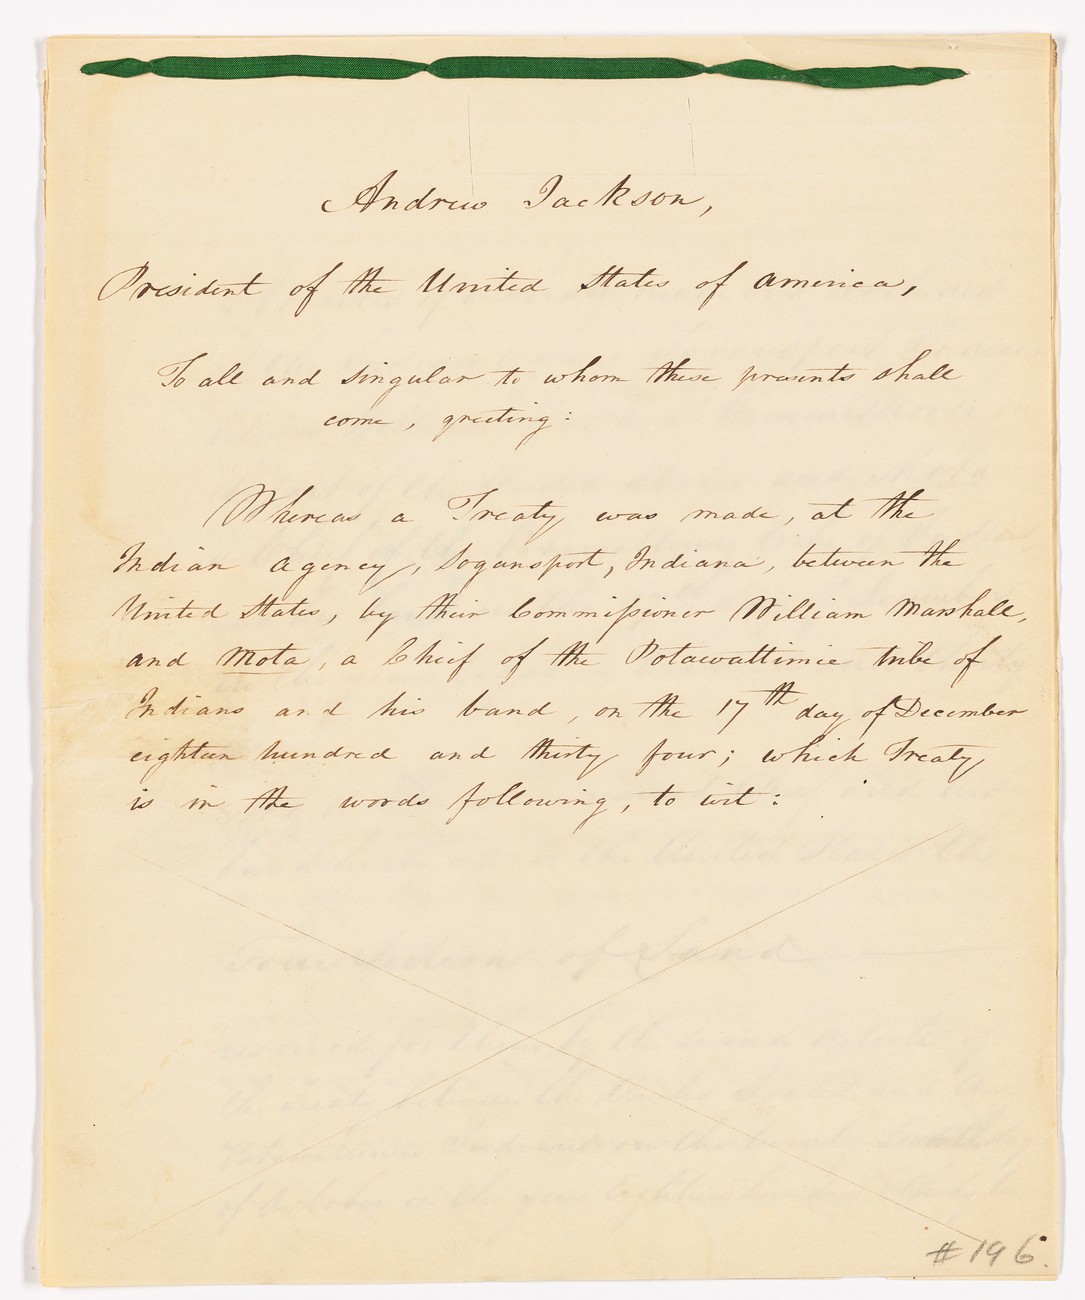 Andrew Jackson,
President of the United States of America,
To all and singular to whom these presents shall
come, greeting:
Whereas a Treaty was made, at the
Indian Agency, Logansport, Indiana, between the
United States, by their Commissioner William Marshall,
and Mota, a Chief of the Potawattimie tribe of
Indians and his band, on the 17th day of December
eighteen hundred and thirty four; which Treaty
is in the words following, to wit:
#196.